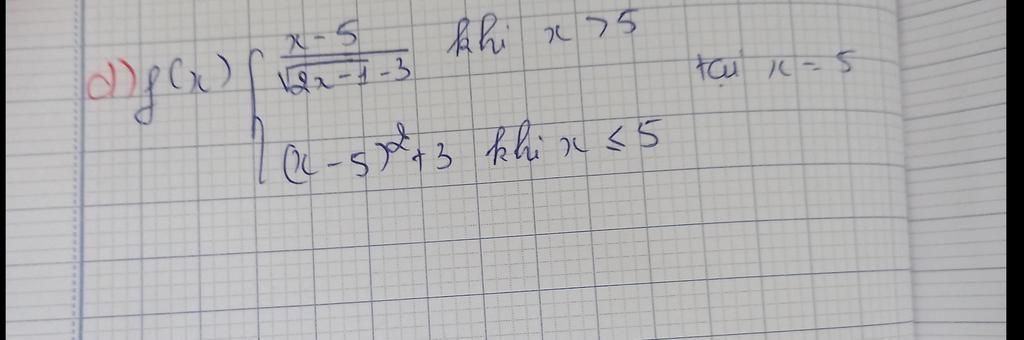 d) f(x) { (x-5)/(√(2x-1) -3) khi x > 5
(x-5)² + 3 khi x ≤ 5
tại x = 5